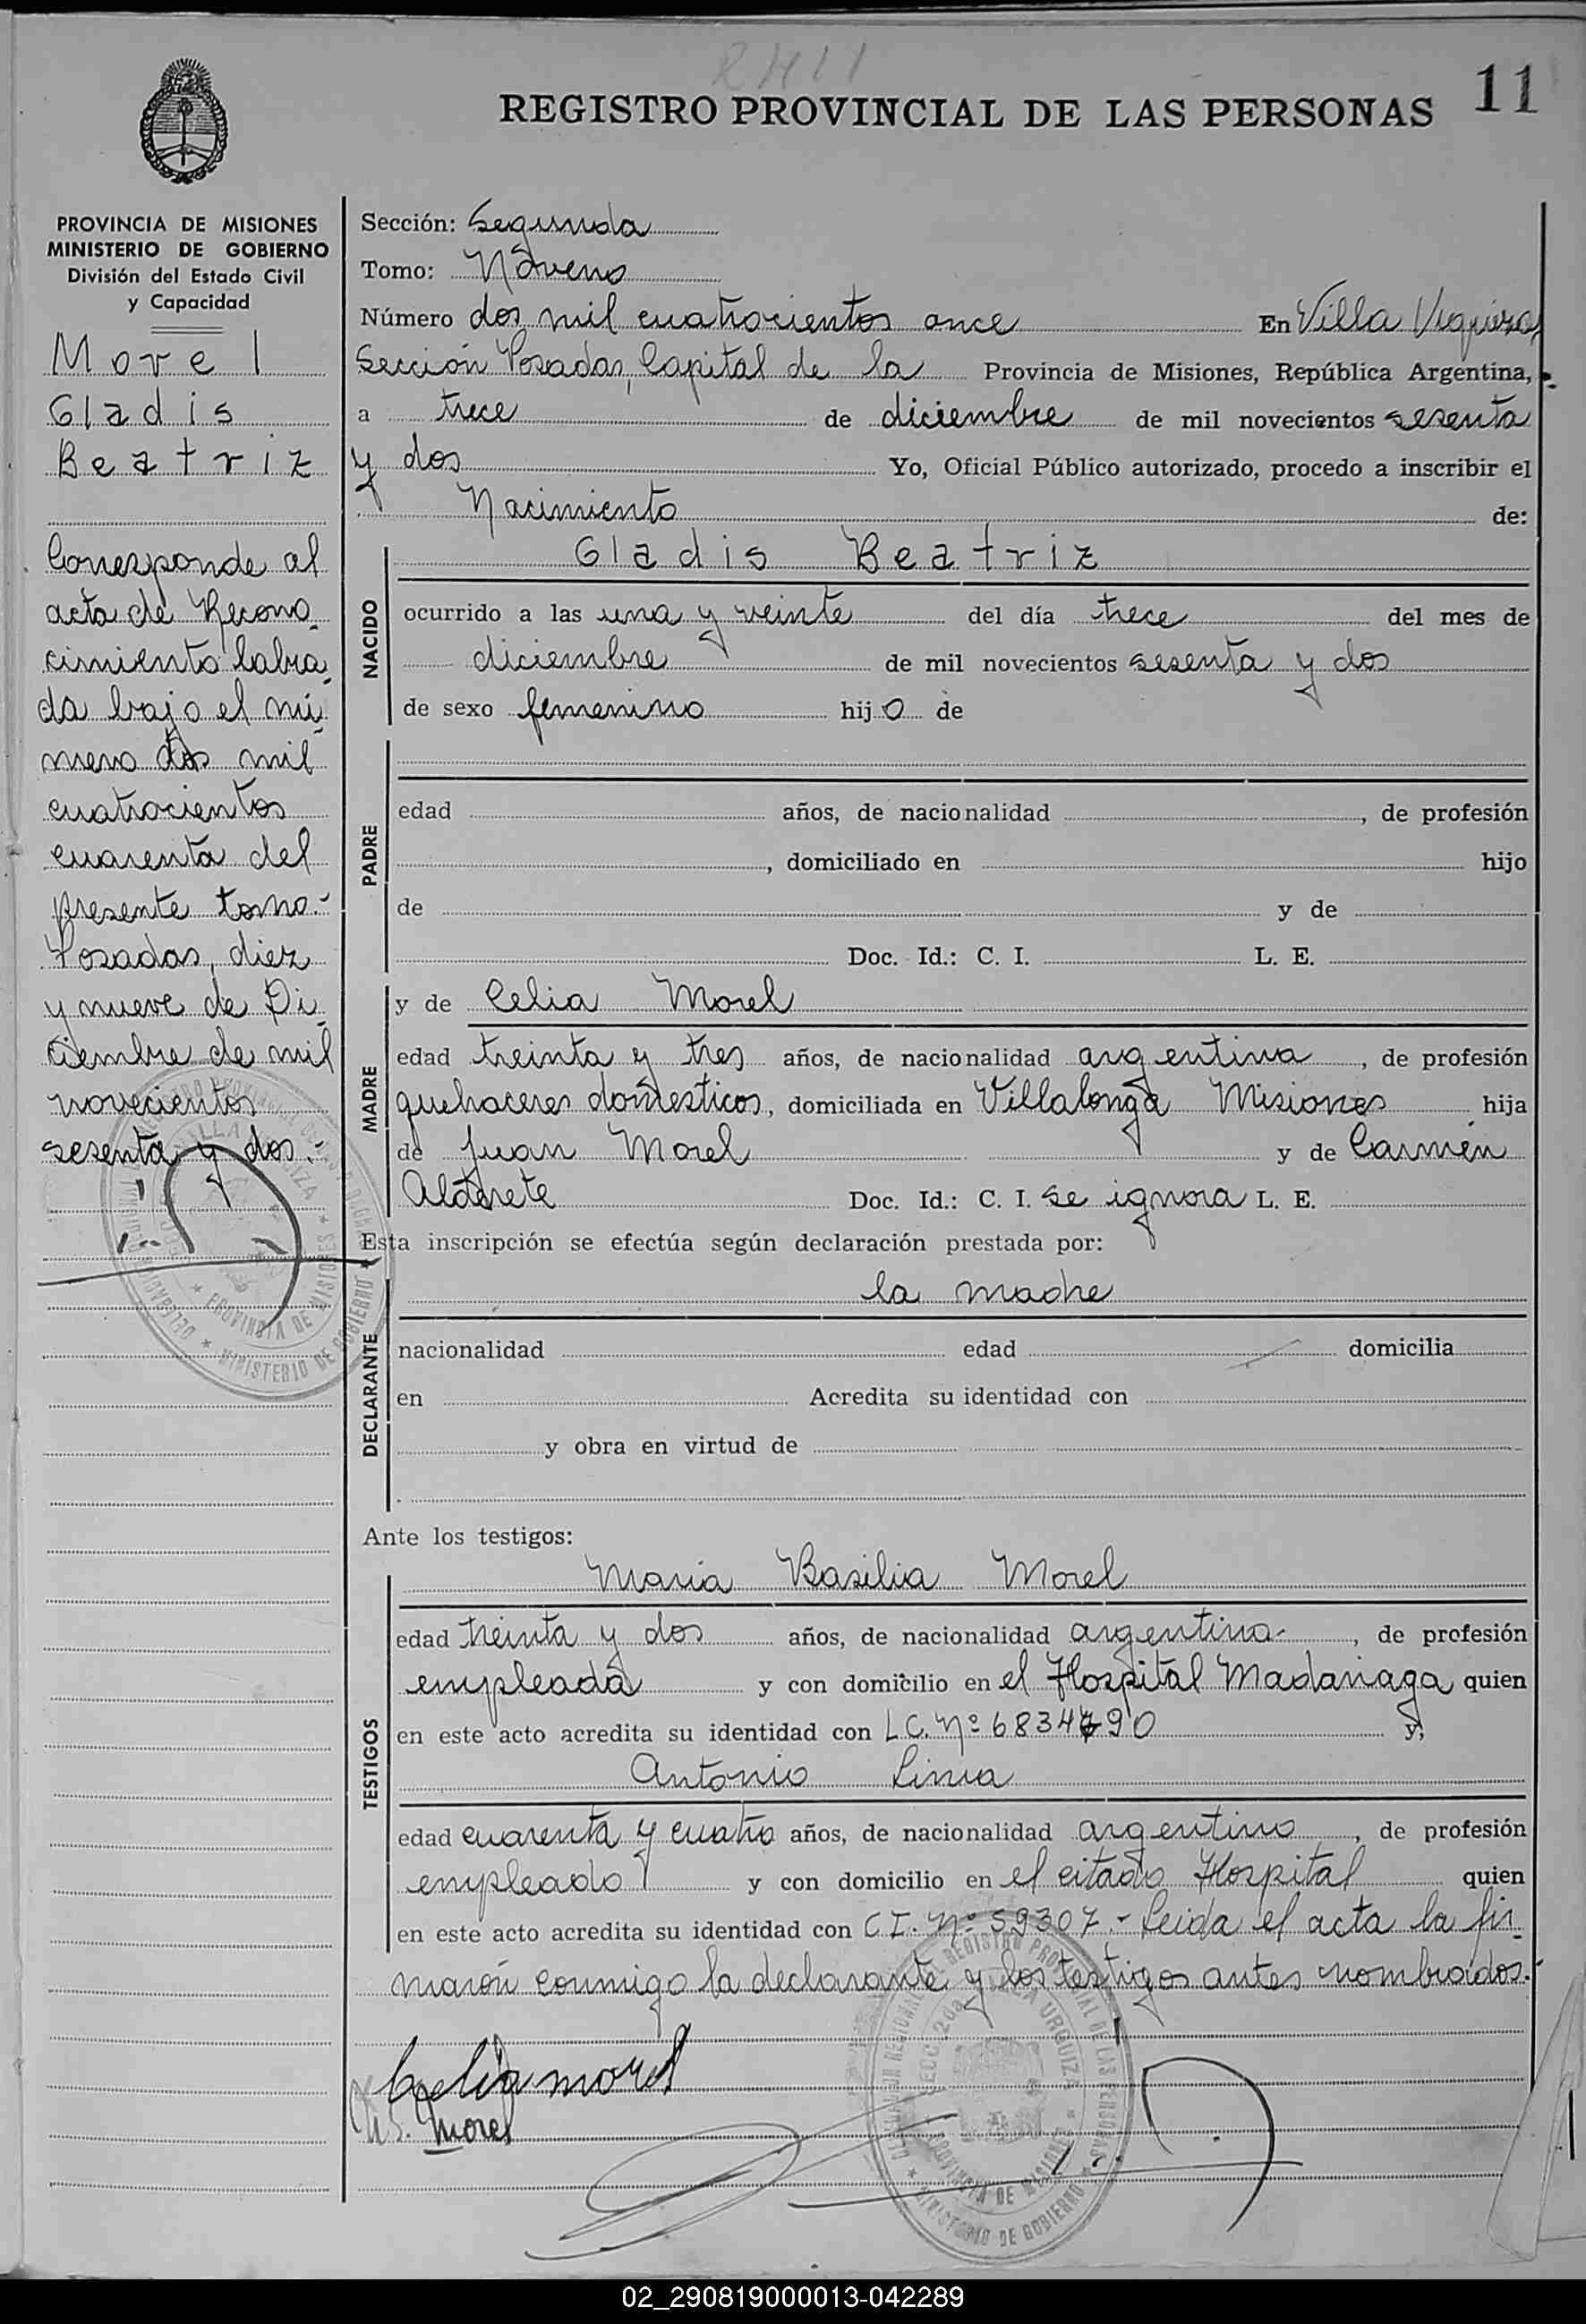 2411
REGISTRO PROVINCIAL DE LAS PERSONAS
11
PROVINCIA DE MISIONES
MINISTERIO DE GOBIERNO
División del Estado Civil
y Capacidad
Morel
Gladis
Beatriz
Corresponde al
acta de Recono-
cimiento labra-
da bajo el nú-
mero dos mil
cuatrocientos
cuarenta del
presente tomo.-
Posadas, diez
y nueve de Di-
ciembre de mil
novecientos
sesenta y dos.-
Sección: Segunda
Tomo: Noveno
Número dos mil cuatrocientos once En Villa Urquiza
Sección Posadas, Capital de la Provincia de Misiones, República Argentina,
a trece de diciembre de mil novecientos sesenta
y dos Yo, Oficial Público autorizado, procedo a inscribir el
Nacimiento de:
NACIDO
Gladis Beatriz
ocurrido a las una y veinte del día trece del mes de
diciembre de mil novecientos sesenta y dos
de sexo femenino hijo de
PADRE
edad años, de nacionalidad , de profesión
, domiciliado en hijo
de y de
Doc. Id.: C. I. L. E.
MADRE
y de Celia Morel
edad treinta y tres años, de nacionalidad argentina , de profesión
quehaceres domesticos, domiciliada en Villalonga Misiones hija
de Juan Morel y de Carmen
Alderete Doc. Id.: C. I. se ignora L. E.
Esta inscripción se efectúa según declaración prestada por:
la madre
DECLARANTE
nacionalidad edad domicilia
en Acredita su identidad con
y obra en virtud de
Ante los testigos:
TESTIGOS
Maria Basilia Morel
edad treinta y dos años, de nacionalidad argentina- , de profesión
empleada y con domicilio en el Hospital Madariaga quien
en este acto acredita su identidad con L.C. Nº 6834790 y,
Antonio Lima
edad cuarenta y cuatro años, de nacionalidad argentino , de profesión
empleado y con domicilio en el citado Hospital quien
en este acto acredita su identidad con C I. Nº 59307.- Leida el acta la fir-
maron conmigo la declarante y los testigos antes nombrados.-
Celia morel
Morel
02_290819000013-042289